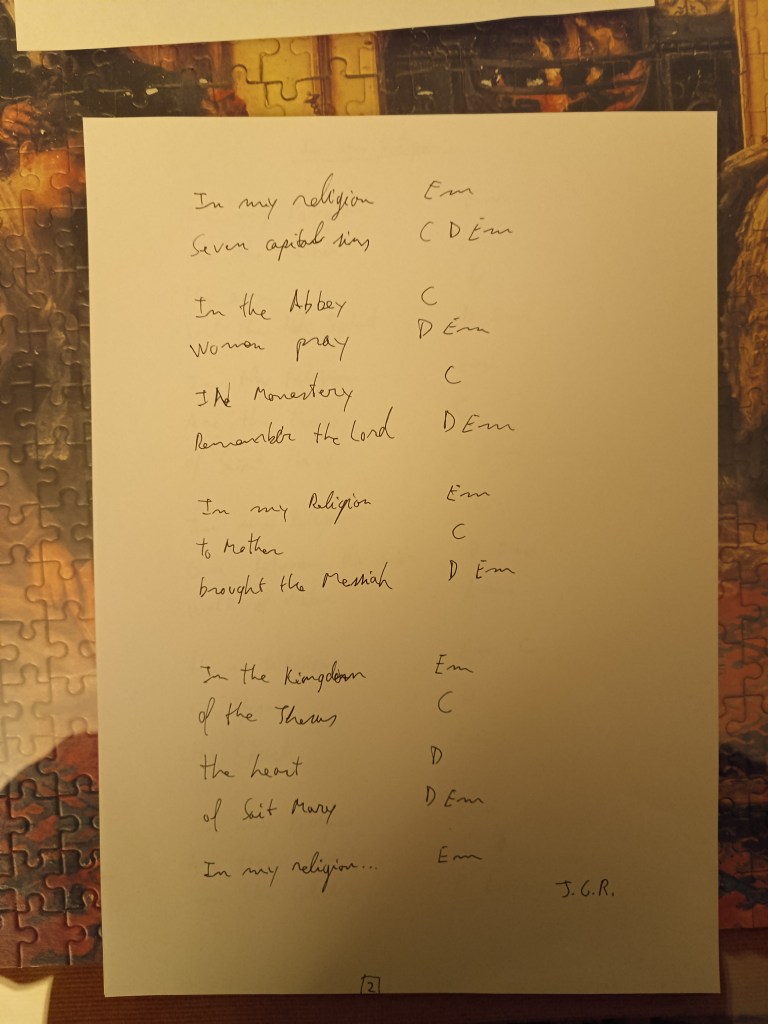 In my religion Em
Seven capital sins C D Em
In the Abbey C
Women pray D Em
IN Monastery C
Remember the Lord D Em
In my Religion Em
to Mother C
brought the Messiah D Em
In the Kingdom Em
of the C
the heart D
of Sait Mary D Em
In my religion... Em
J.G.R.
2